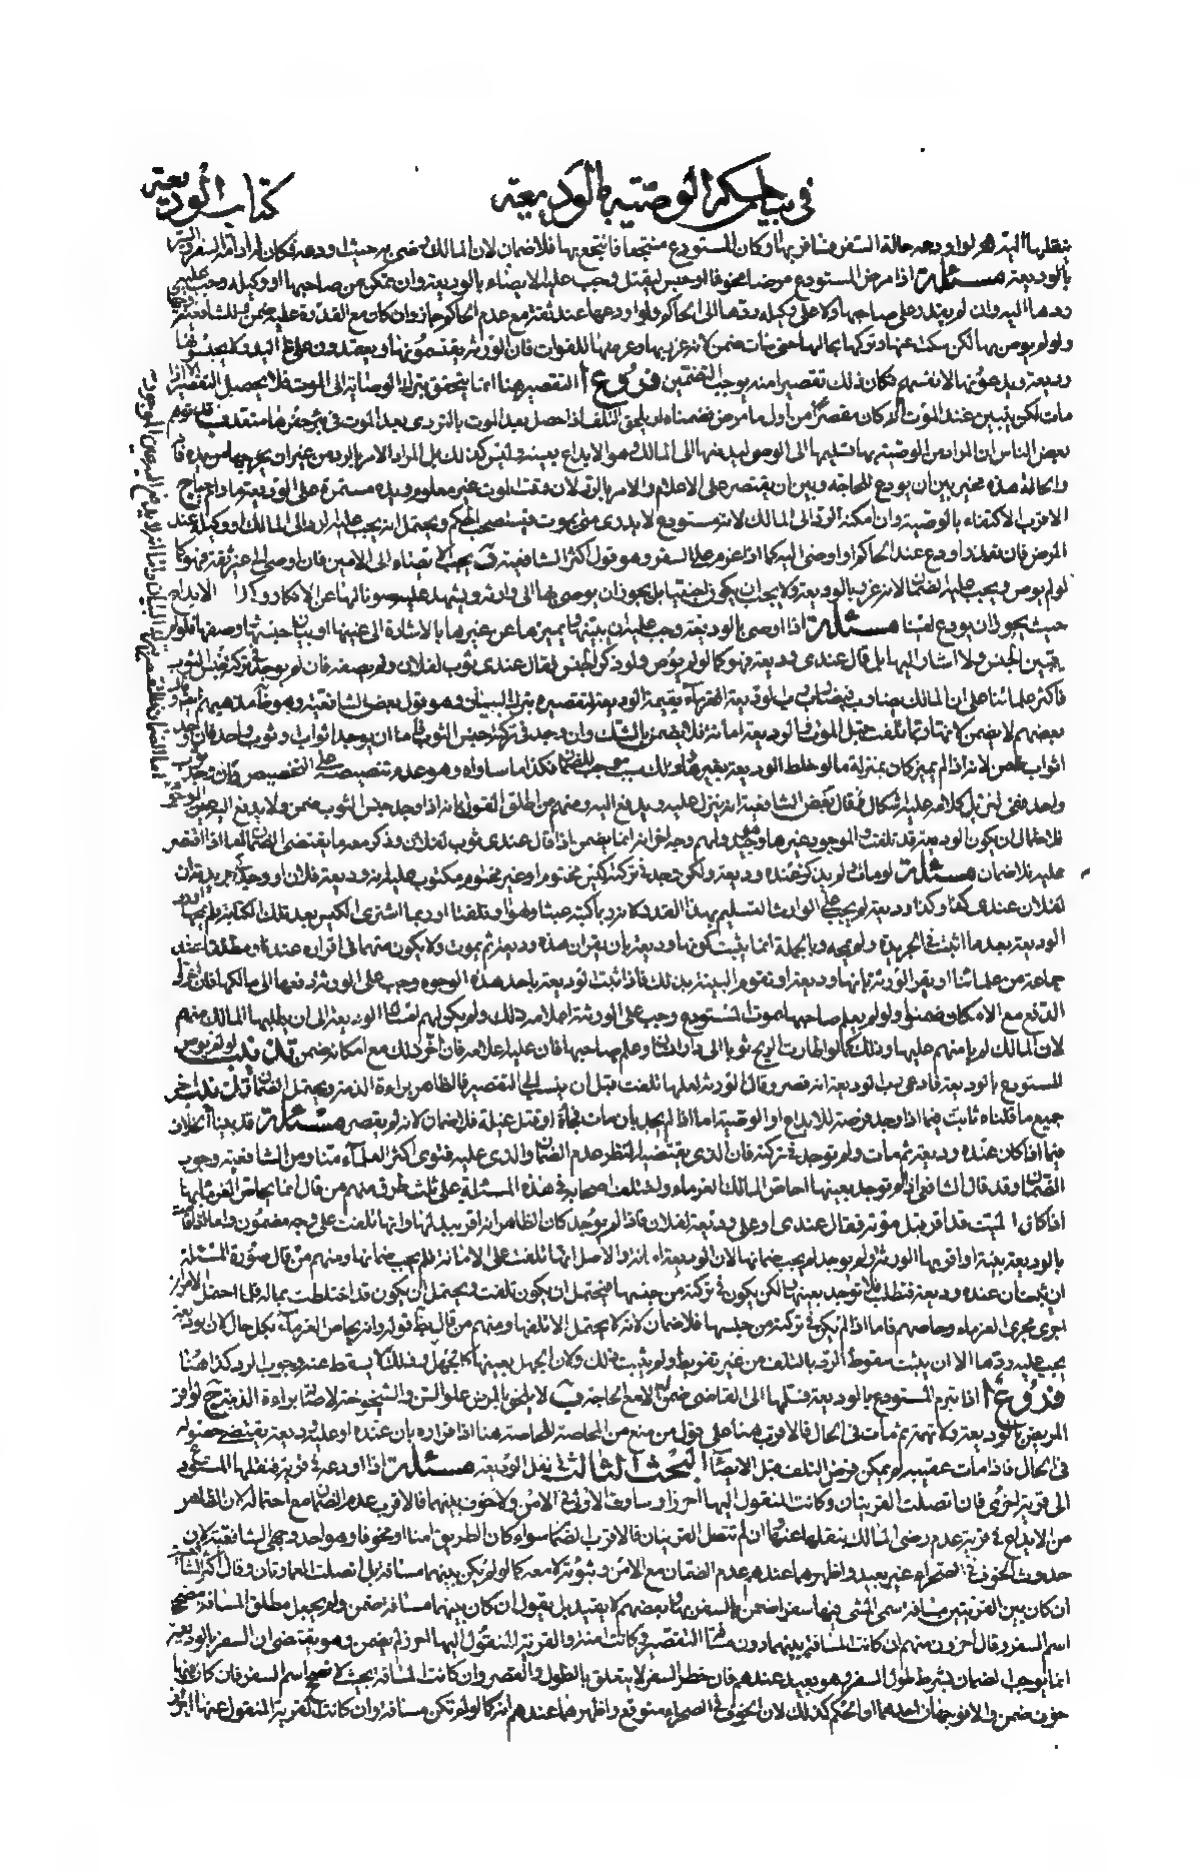 في بيان حكم الوصية بالوديعة
كتاب الوديعة
ينقلها اليه هو لو اودعه حالة السفر فسافر بها او كان المستودع منتجعا فانتجع بها فلا ضمان لان المالك رضي به حيث اودعه فكان له ادامة السفر والسير
بالوديعة مسئلة اذا مرض المستودع مرضا مخوفا او حبس ليقتل وجب عليه الايصاء بالوديعة وان تمكن من صاحبها او وكيله وجب عليه
ردها اليه وان لم يقدر على صاحبها ولا على وكيله ردها الى الحاكم ولو اودعها عند ثقة مع عدم الحاكم جاز وان كان مع القدرة عليه ضمن
ولو لم يوص بها لكن سكت عنها وتركها بحالها حتى مات ضمن لانه غرر بها وعرضها للفوات فان الورثة يقتسمونها ويعتمدون على ظاهر اليد
ويدعونها لانفسهم فكان ذلك تقصيرا منه يوجب التضمين فروع ا التقصير هنا انما يتحقق بترك الوصاية الى الموت فلا يحصل التقصير الا اذا
مات لكن يتبين عند الموت انه كان مقصرا من اول ما مرض فضمناه او يلحق التلف اذا حصل بعد الموت بالتردي بعد الموت في بئر حفرها متعديا ب قد توهم
بعض الناس ان المراد من الوصية بها تسليمها الى الوصي ليدفعها الى المالك وهو الايداع بعينه وليس كذلك بل المراد الامر بالرد من غير ان يخرجها من يده فانه
والحالة هذه مخير بين ان يودع للحاجة وبين ان يقتصر على الاعلام والامر بالرد لان وقت الموت غير معلوم ويده مستمرة على الوديعة ما دام حيا ج
الاقرب الاكتفاء بالوصية وان امكنه الرد الى المالك لانه مستودع لا يدري متى يموت فيستصحب الحكم ويحتمل انه يجب عليه ردها الى المالك او وكيله عند
المرض فان تعذر اودع عند الحاكم او اوصى اليه كما اذا عزم على السفر وهو قول اكثر الشافعية د يجب الايصاء الى الامين فان اوصى الى غير ثقة فهو كما
لو لم يوص ويجب عليه الضمان لانه غرر بالوديعة ولا يجب ان يكون اجنبيا بل يجوز ان يوصي بها الى وارثه ويشهد عليه صونا لها عن الانكار وكذا الايداع
حيث يجوز ان يودع امينا مسئلة اذا اوصى بالوديعة وجب عليه ان يبينها ويميزها عن غيرها بالاشارة الى عينها او بيان جنسها وصفتها فلو لم
يبين الجنس ولا اشار اليها بل قال عندي وديعة فهو كما لو لم يوص ولو ذكر الجنس فقال عندي ثوب لفلان ولم يصفه فان لم يوجد في تركته جنس الثوب
فاكثر علمائنا على ان المالك يضارب رب الوديعة الغرماء بقيمة الوديعة لتقصيره بترك البيان وهو قول بعض الشافعية وهو ظاهر مذهبهم وقال
بعضهم لا يضمن لانها ربما تلفت قبل الموت والوديعة امانة فلا يضمن بالشك وان وجد في تركته جنس الثوب فاما ان يوجد اثواب او ثوب واحد فان وجد
اثواب ضمن لانه اذا لم يميز كان بمنزلة ما لو خلط الوديعة بغيرها وذلك سبب موجب للضمان فكذا ما ساواه وهو عدم تنصيصه على التخصيص وان وجد ثوب
واحد ففي تنزيل كلامه عليه اشكال فقال بعض الشافعية انه ينزل عليه ويدفع اليه ومنهم من اطلق القول بانه اذا وجد جنس الثوب ضمن ولا يدفع اليه الموجود
فلاحتمال ان يكون الوديعة قد تلفت والموجود غيرها وهو جيد ولهم وجه اخر انه انما يضمن اذا قال عندي ثوب لفلان وذكر معه ما يقتضي الضمان اما اذا اقتصر
عليه فلا ضمان مسئلة لو مات ولم يذكر عنده وديعة ولكن وجد في تركته كيس مختوم او غير مختوم مكتوب عليه انه وديعة فلان او وجد في جريدته ان
لفلان عندي كذا وكذا وديعة لم يجب على الوارث التسليم بهذا القدر لانه ربما كتبه عبثا ولهوا وتلقينا او ربما اشترى الكيس بعد تلك الكتابة فلم يمحها او رد
الوديعة بعد ما اثبت في الجريدة ولم يمحه وبالجملة انما يثبت كونها وديعة بان يقر ان هذه وديعة ثم يموت ولا يكون متهما في اقراره عندنا ومطلقا عند
جماعة من علمائنا او يقر الورثة بانها وديعة او تقوم البينة بذلك فاذا ثبتت الوديعة باحد هذه الوجوه وجب على الورثة دفعها الى مالكها فان اخروا
الدفع مع الامكان ضمنوا ولو لم يعلم صاحبها بموت المستودع وجب على الورثة اعلامه ذلك ولم يكن لهم امساك الوديعة الى ان يطلبها المالك منهم
لان المالك لم يامنهم عليها وذلك كما لو اطارت الريح ثوبا الى دار انسان وعلم صاحبها فان عليه اعلامه فان اخر ذلك مع امكانه ضمن تذنيب لو لم يوص
المستودع بالوديعة فادعى رب الوديعة انه قصر وقال الورثة لعلها تلفت قبل ان ينسب الى التقصير فالظاهر براءة الذمة ويحتمل الضمان تذنيب اخر
جميع ما قلناه ثابت فيما اذا وجد فرصة للايداع او الوصية اما اذا لم يجد بان مات فجأة او قتل غيلة فلا ضمان لانه لم يقصر مسئلة قد بينا الخلاف
فيما اذا كان عنده وديعة ثم مات ولم توجد في تركته فان الذي يقتضيه النظر عدم الضمان والذي عليه فتوى اكثر العلماء منا ومن الشافعية وجوب
الضمان وقد قال الشافعي اذا لم توجد بعينها احاص المالك الغرماء واختلف اصحابه في هذه المسئلة على ثلث طرق منهم من قال انما يحاص الغرماء بها
اذا كان الميت قد اقر قبل موته فقال عندي او علي وديعة لفلان فاذا لم توجد كان الظاهر انه اقر ببدلها وانها تلفت على وجه مضمون واما اذا قامت
بالوديعة بينة او اقر بها الورثة ولم توجد لم يجب ضمانها لان الوديعة امانة والاصل انها تلفت على الامانة فلم يجب ضمانها ومنهم من قال صورة المسئلة
ان يثبت ان عنده وديعة فتطلب فلا توجد بعينها ولكن يكون في تركته من جنسها فيحتمل ان يكون تلفت ويحتمل ان يكون قد اختلطت بماله فلما احتمل الامران
اجرى مجرى الغرماء وحاصهم فاما اذا لم يكن في تركته من جنسها فلا ضمان لانه لا يحتمل الا تلفها ومنهم من قال بظاهر قوله وانه يحاص الغرماء بكل حال لان الوديعة
يجب عليه ردها الا ان يثبت سقوط الرد بالتلف من غير تفريط ولم يثبت ذلك ولان الجهل بعينها كالجهل بتلفها لا يسقط عنه وجوب الرد كذا هنا
فروع ا اذا تبرم المستودع بالوديعة فسلمها الى القاضي ضمن الا مع الحاجة ب لا يلحق بالمرض علو السن والشيخوخة لاصالة براءة الذمة ج لو اقر
المريض بالوديعة ولا تهمة ثم مات في الحال فالاقرب هنا على قول من منع من المحاصة المحاصة هنا اذا اقراره بان عنده او عليه وديعة يقتضي حصوله
في الحال فاذا مات عقيبه لم يمكن فرض التلف قبل الايصاء البحث الثالث في نقل الوديعة مسئلة اذا اودعه في قرية فنقلها المستودع
الى قرية اخرى فان اتصلت القريتان وكانت المنقول اليها احرز او ساوت الاولى في الامن ولا خوف بينهما فالاقرب عدم الضمان مع احتماله لان الظاهر
من الايداع في قرية عدم رضى المالك بنقلها عنها وان لم تتصل القريتان فالاقرب الضمان سواء كان الطريق امنا او مخوفا وهو احد وجهي الشافعية لان
حدوث الخوف في الصحراء غير بعيد واظهرهما عندهم عدم الضمان مع الامن وثبوته لا معه كما لو لم يكن بينهما مسافة بل اتصلت العمارتان وقال اكثر الشافعية
ان كان بين القريتين مسافة اسمى المشي فيها سفرا ضمن بالسفر بها وبعضهم لا يقيد بل يقول ان كان بينهما مسافة ضمن ولم يجعل مطلق المسافة مصححا
اسم السفر وقال اخرون منهم ان كانت المسافة بينهما دون مسافة التقصير وكانت امنة والقرية المنقول اليها احرز لم يضمن وهو يقتضي ان السفر بالوديعة
انما يوجب الضمان بشرط طول السفر وهو بعيد عندهم فان خطر السفر لا يتعلق بالطول والقصر وان كانت المسافة بحيث لا تصحح اسم السفر فان كان فيها
خوف ضمن والا فوجهان احدهما ان الحكم كذلك لان الخوف في الصحراء متوقع واظهرهما عندهم انه كما لو لم تكن مسافة وان كانت القرية المنقول عنها احرز